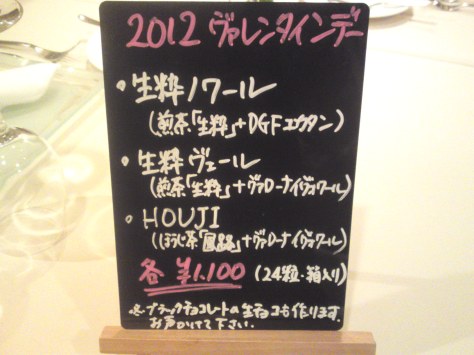 2012 ヴァレンタインデー
・生粋ノワール
(煎茶「生粋」+DGFエクアタン)
・生粋ヴェール
(煎茶「生粋」+ヴァローナイヴォワール)
・HOUJI
(ほうじ茶「風路」+ヴァローナイヴォワール)
各 ¥1.100 (24粒・箱入り)
※ブラックチョコレートの生チョコも作ります。
お声かけて下さい。